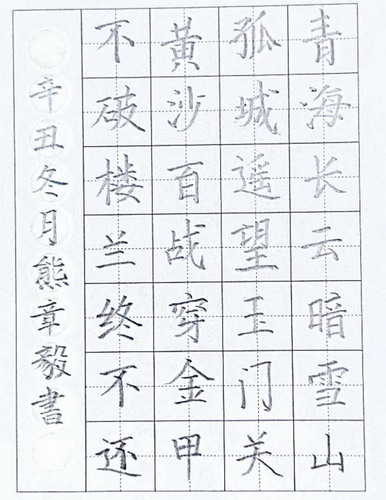 青海长云暗雪山
孤城遥望玉门关
黄沙百战穿金甲
不破楼兰终不还
辛丑冬月熊章毅書